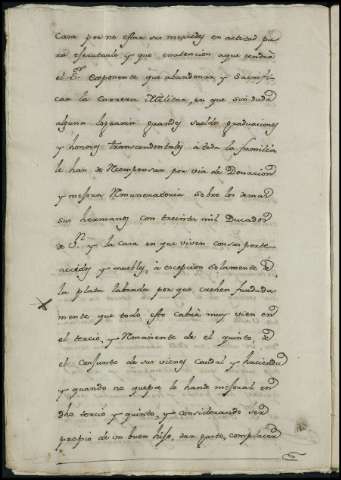 Casa por no estar sus mercedes en actitud pa
ra executarle y que enatencion aque tendria
el Sr. Exponente que abandonar, y Sacrifi
car la Carrera Militar, en que sin duda
alguna lograria grandes sueldos graduaciones
y honores transcendentales à toda la familia
le han de Recompensar por via de Donacion
y mejora Remuneratoria sobre los demas
sus hermanos con treinta mil Ducados
de Pta. y la Casa en que viven con su porte
 y muebles, à escepcion solamente de
la plata labrada por que crehen fundada
mente que todo esto cabrà muy vien en
el tercio, y Remanente de el quinto, de
el Conjunto de sus vienes Caudal y haciendas
y quando no quepa le hande mejorar en
dho tercio y quinto, y considerando ser
propio de un buen hijo, dar gusto, complacer